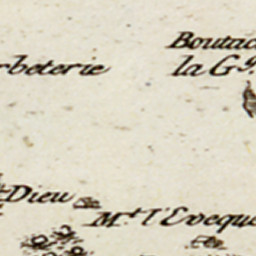 Boutac
rbeterie
la Gge.
Dieu
Mt. l'Eveque